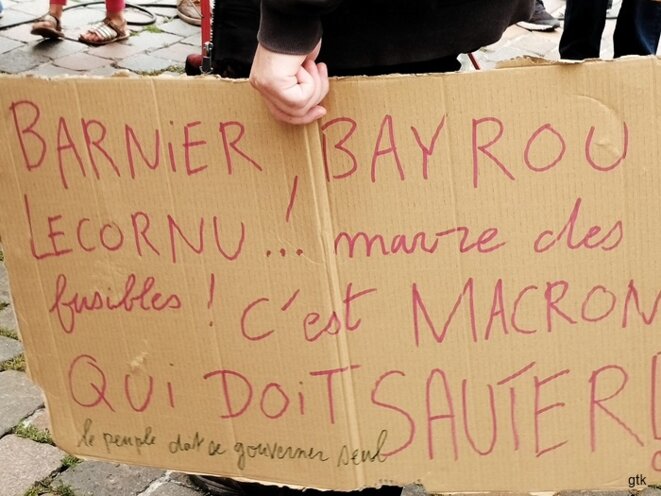 BARNIER, BAYROU
LECORNU..! marre des
fusibles ! C'est MACRON
QUI DOIT SAUTER!
le peuple doit se gouverner seul
gtk